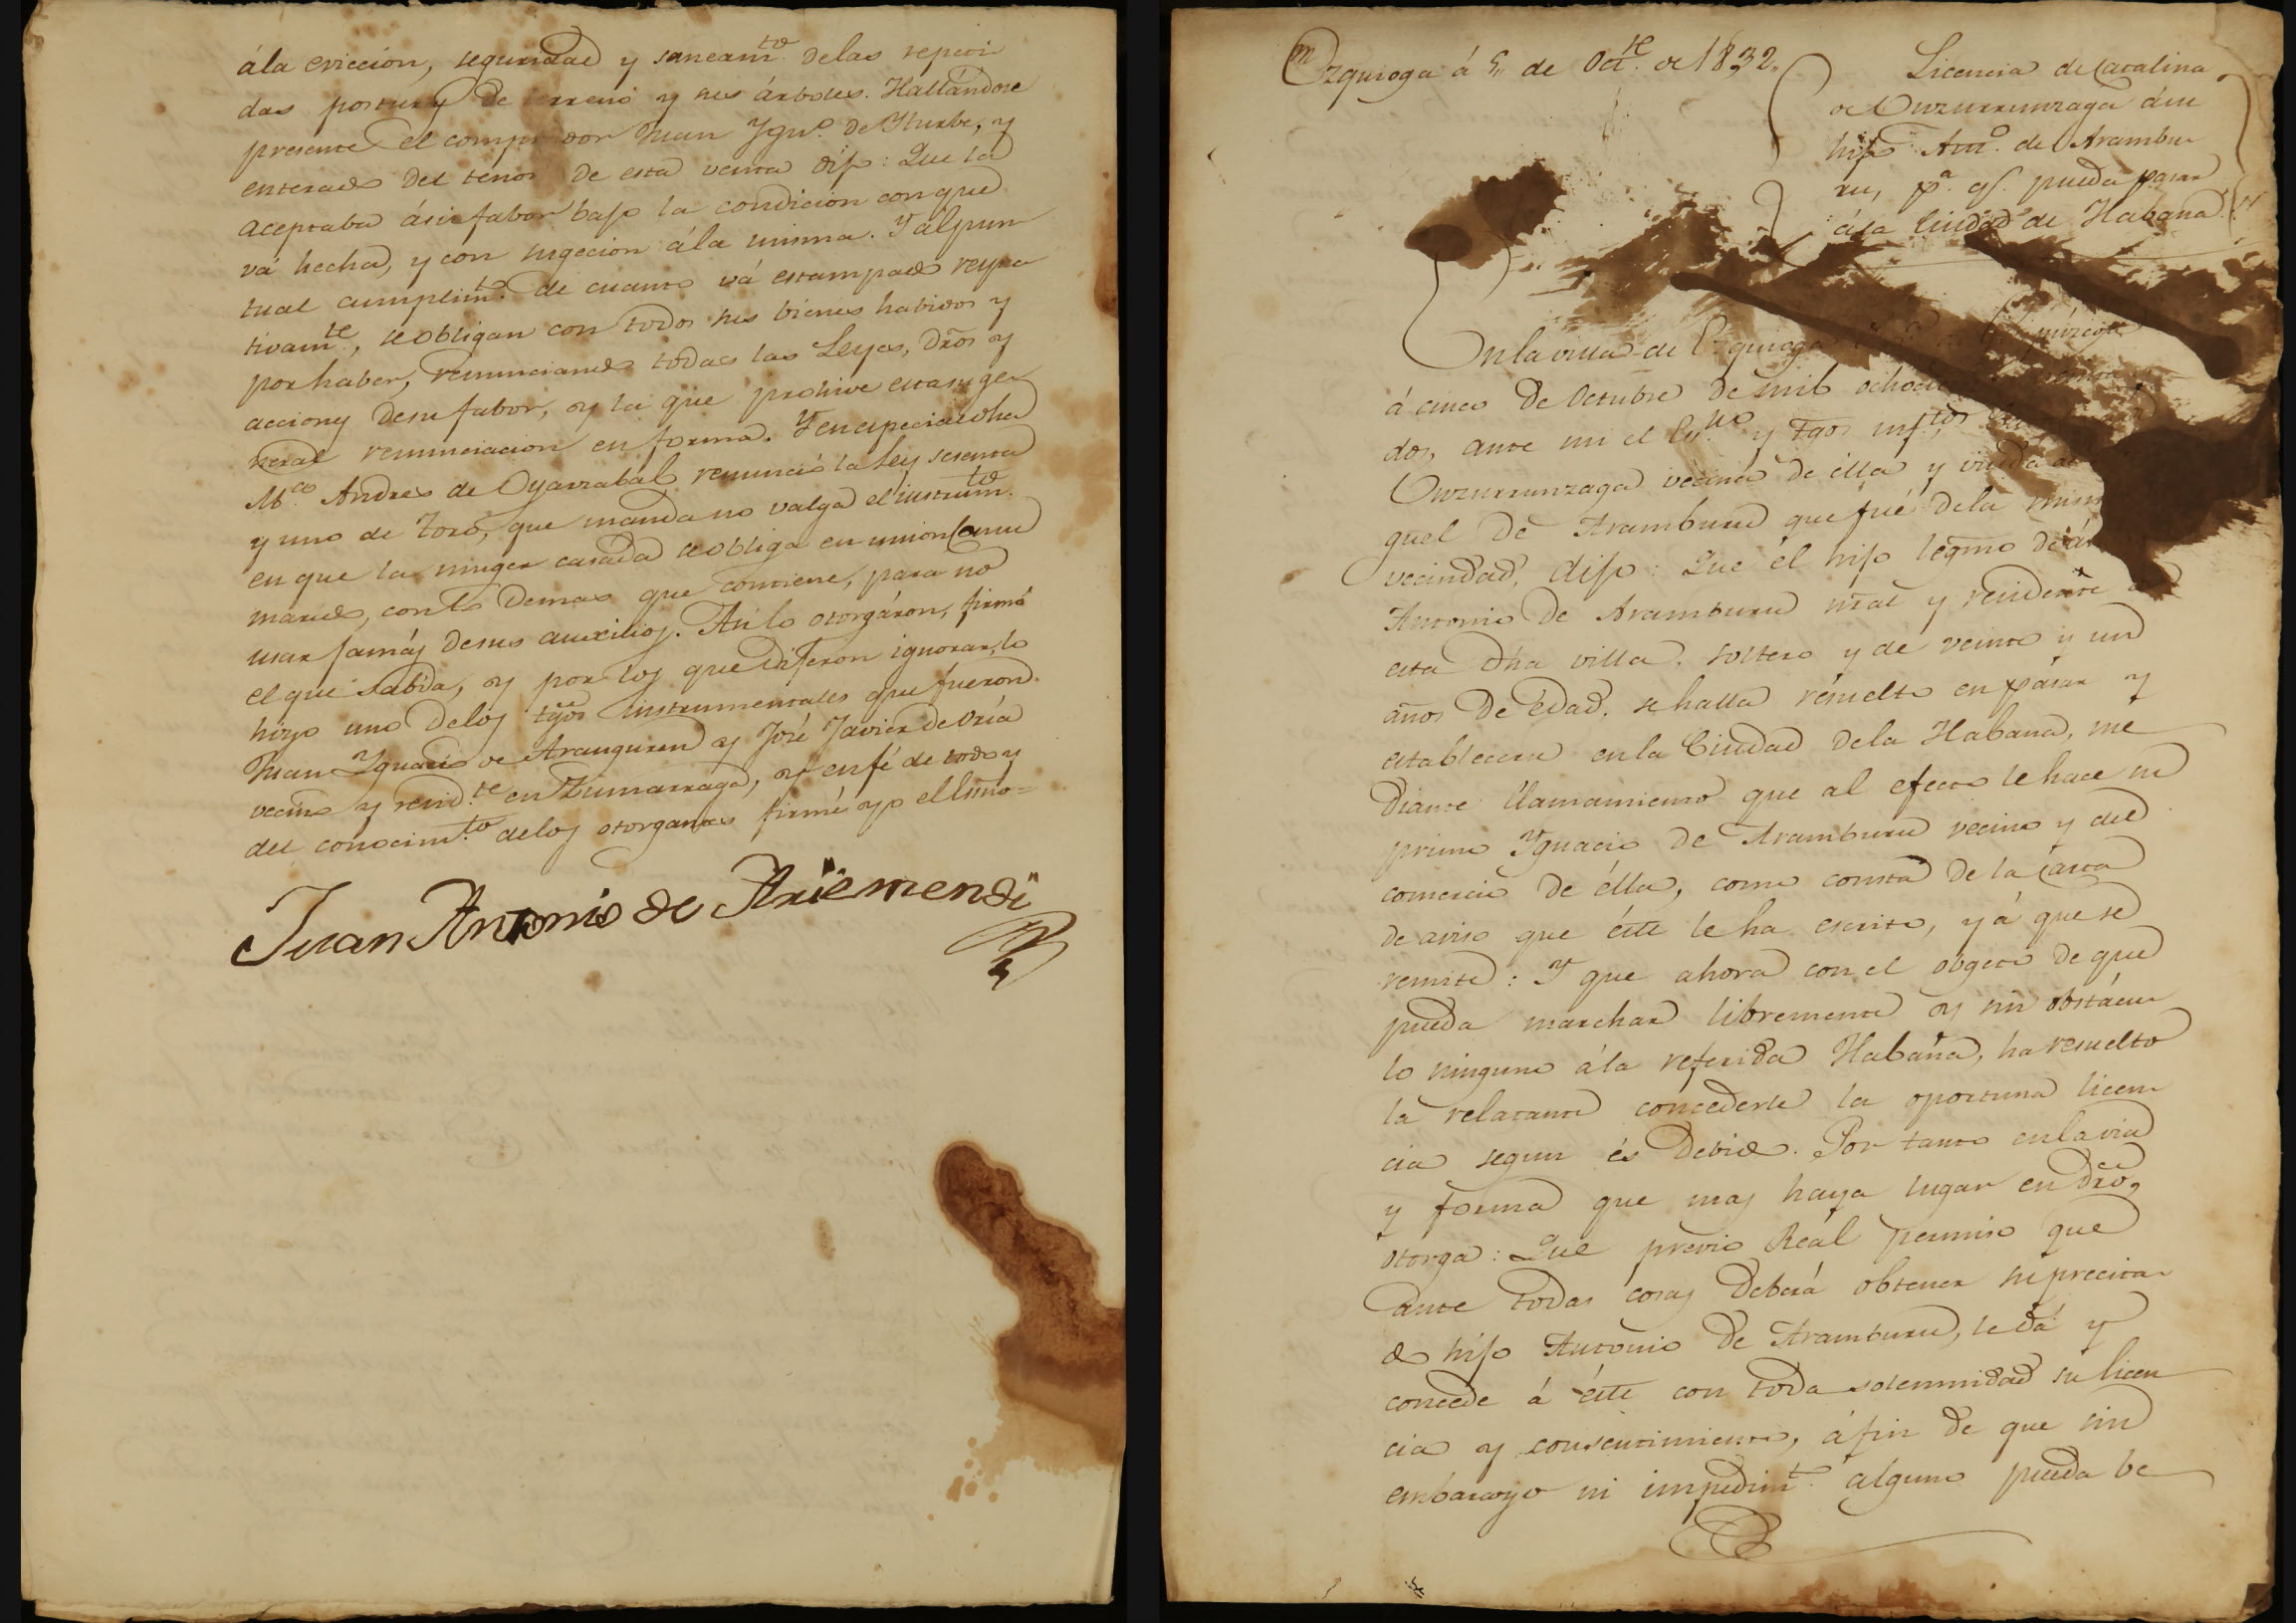 ála evicción, seguridad y saneamto. delas referi
das posturas de terreno y sus árboles. Hallándose
presente el comprador Juan Ygno. de Yturbe, y
enterado del tenor de esta venta dijo: Que la
aceptaba ásu fabor bajo la condicion conque
vá hecha, y con sugecion ála misma. Y alpun
tual cumplimto. de cuanto vá estampado respec
tivamte., se obligan con todos sus bienes habidos y
por haber, renunciando todas las Leyes, Dros y
acciones desu fabor, y la que prohive esta su ge
neral renunciacion en forma. Y en especial dha
Ma. Andres de Oyarzabal renunció la Ley sesenta
y uno de Toro, que manda no valga el instrumto.
en que la muger casada se obliga en union consu
marido, con lo demas que contiene, para no
usar jamás desus auxilios. Asi lo otorgáron, firmó
el que sabía, y por los que dijeron ignorar, lo
hizo uno delos tgos instrumentales que fueron
Juan Ygnacio de Aranguren y José Javier de Oria
vecino y residte. en Zumarraga, y en fé de todo y
del conocimto. delos otorgantes firmé yo el Esno=
Juan Antonio de Ariemendi
En Ezquioga á 5,, de Octe. de 1832.
Licencia de Catalina
de Unzurrunzaga ásu
hijo Anto. de Arambu
ru, pa. q. pueda pasar
ála Ciudad de Habana.
En la villa de Ezquioga
á cinco de Octubre de mil ochocientos treinta y
dos, ante mi el Esno. y tgos infttos
Unzurrunzaga vecina de élla y viuda de
guel de Aramburu que fué dela misma
vecindad, dijo: Que el hijo legmo de ám
Antonio de Aramburu nral y residente en
esta dha villa, soltero y de veinte y un
años de edad, se halla resuelto en pasar y
establecerse en la Ciudad dela Habana, me
diante llamamiento que al efecto le hace su
primo Ygnacio de Aramburu vecino y del
comercio de élla, como consta de la carta
de aviso que éste le ha escrito, y á que se
remite: Y que ahora con el obgeto de que
pueda marchar libremente y sin obstácu
lo ninguno ála referida Habana, ha resuelto
la relatante concederle la oportuna licen
cia segun és debido. Por tanto en la via
y forma que mas haya lugar en Dro,
otorga: Que previo Real permiso que
ante todas cosas deberá obtener su precita
do hijo Antonio de Aramburu, le dá y
concede á éste con toda solemnidad su licen
cia y consentimiento, á fin de que sin
embarazo ni impedimto. alguno pueda be